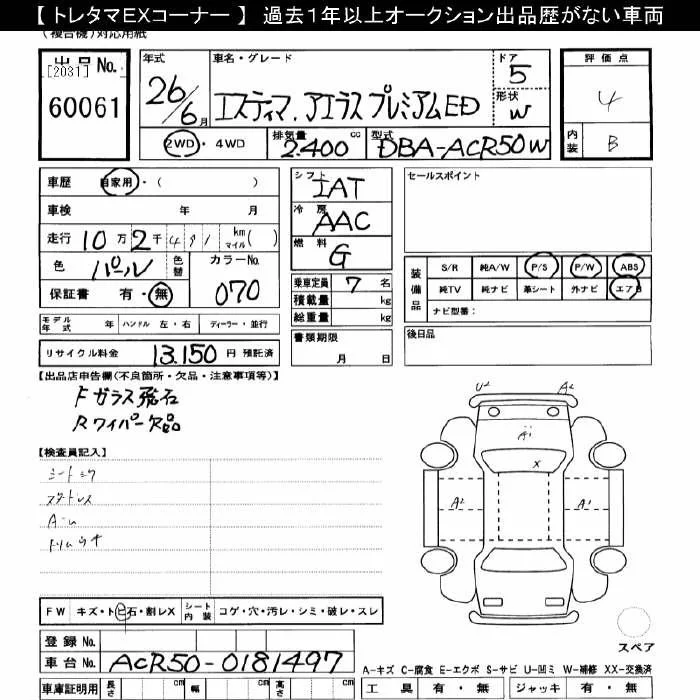 【 トレタマEXコーナー 】 過去1年以上オークション出品歴がない車両
(複合機)対応用紙
出品 No.
[2031]
60061
年式 26/6月
車名・グレード エスティマ.アエラスプレミアムED
ドア 5
形状 W
評価点 4
内装 B
2WD・4WD
排気量 2.400 cc
型式 DBA-ACR50W
車歴 自家用・( )
車検 年 月
走行 10万2千491 km マイル( )
色 パール
色替
カラーNo. 070
保証書 有・無
シフト IAT
冷房 AAC
燃料 G
乗車定員 7 名
積載量 kg
総重量 kg
セールスポイント
装備品
S/R 純A/W P/S P/W ABS
純TV 純ナビ 革シート 外ナビ エアB
ナビ型番:
モデル年式 年 ハンドル 左・右 ディーラー・並行
書類期限
月 日
後日品
リサイクル料金 13.150 円 預託済
【出品店申告欄(不良箇所・欠品・注意事項等)】
Fガラス飛石
Rワイパー欠品
【検査員記入】
シートミワ
スタッドレス
トリムウキ
U2 A2
A1
X
A2 A1
FW キズ・ト ヒ石・割レX シート内装 コゲ・穴・汚レ・シミ・破レ・スレ
登録 No.
車台 No. ACR50-0181497
車庫証明用 長さ cm 幅 cm 高さ cm
スペア
A-キズ C-腐食 E-エクボ S-サビ U-凹ミ W-補修 XX-交換済
工具 有・無 ジャッキ 有・無